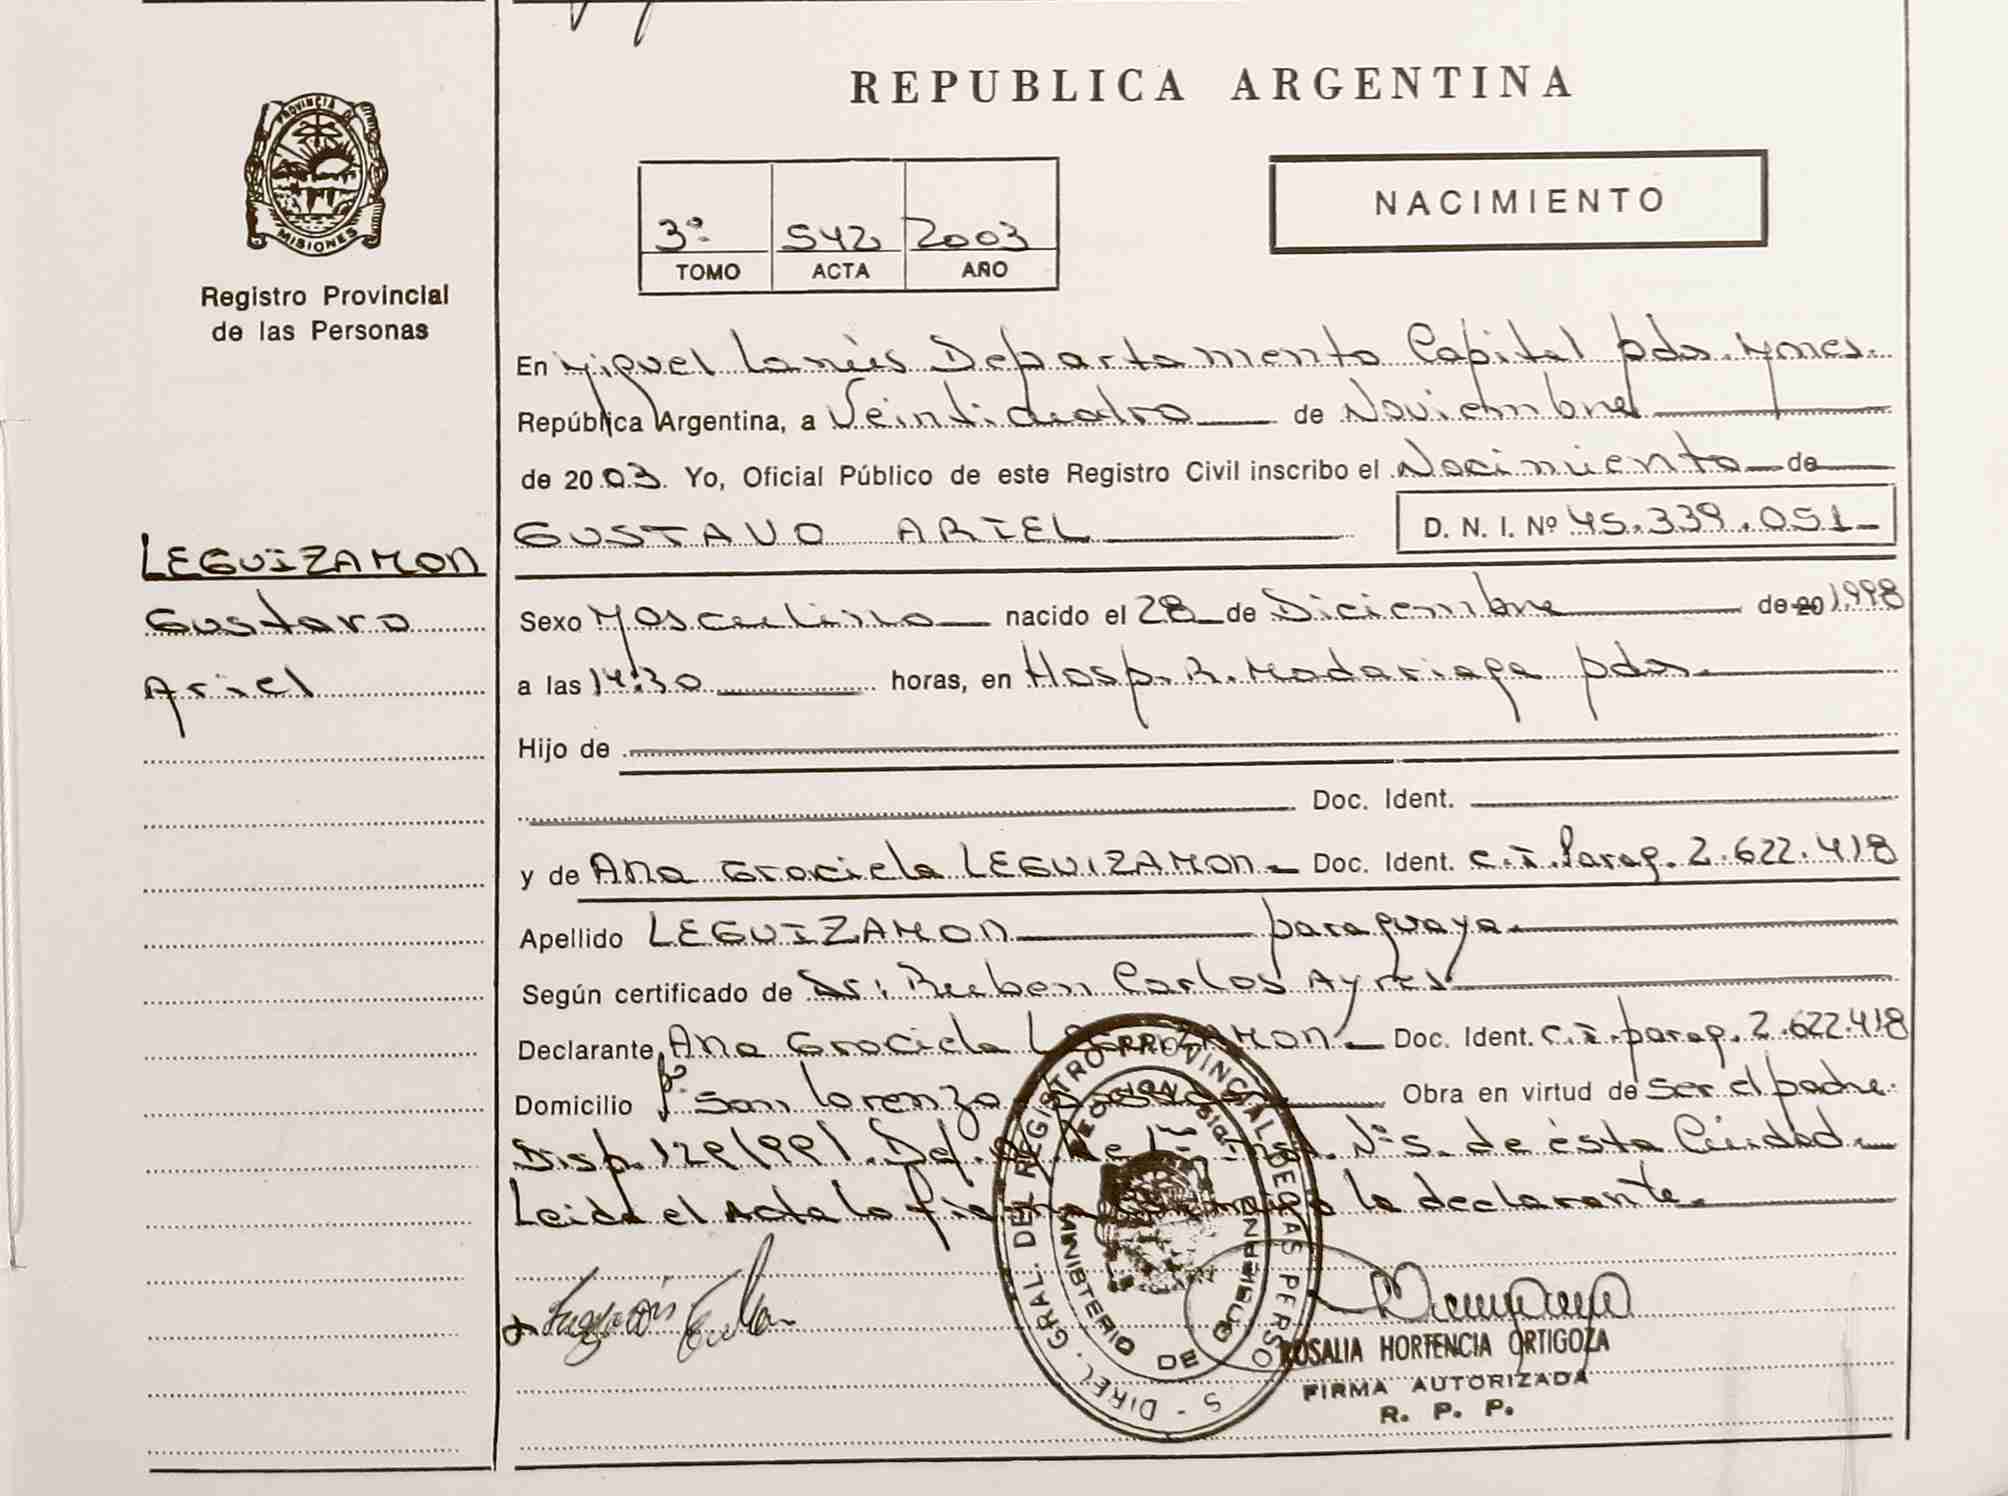 REPUBLICA ARGENTINA
PROVINCIA DE
MISIONES
Registro Provincial
de las Personas
NACIMIENTO
3º 542 2003
TOMO ACTA AÑO
En Miguel Lanús Departamento Capital pdas. Mnes.
República Argentina, a Veinticuatro de Noviembre
de 2003. Yo, Oficial Público de este Registro Civil inscribo el Nacimiento de
GUSTAVO ARIEL D. N. I. Nº 45.339.051
LEGUIZAMON
Gustavo
Ariel
Sexo Masculino nacido el 28 de Diciembre de 20 1998
a las 14:30 horas, en Hosp. R. Madariaga pdas.
Hijo de
Doc. Ident.
y de Ana Graciela LEGUIZAMON Doc. Ident. C.I. Parag. 2.622.418
Apellido LEGUIZAMON paraguaya
Según certificado de Dr: Ruben Carlos Ayres
Declarante Ana Graciela LEGUIZAMON Doc. Ident. C.I. parag. 2.622.418
Domicilio Bº San Lorenzo Obra en virtud de ser el padre
Disp. 129/991. Def. de Inst. Nº 5. de ésta Ciudad
Leida el Acta la firma conmigo la declarante.
S - DIREC. GRAL. DEL REGISTRO PROVINCIAL DE LAS PERSO
MINISTERIO DE GOBIERNO
ROSALIA HORTENCIA ORTIGOZA
FIRMA AUTORIZADA
R. P. P.